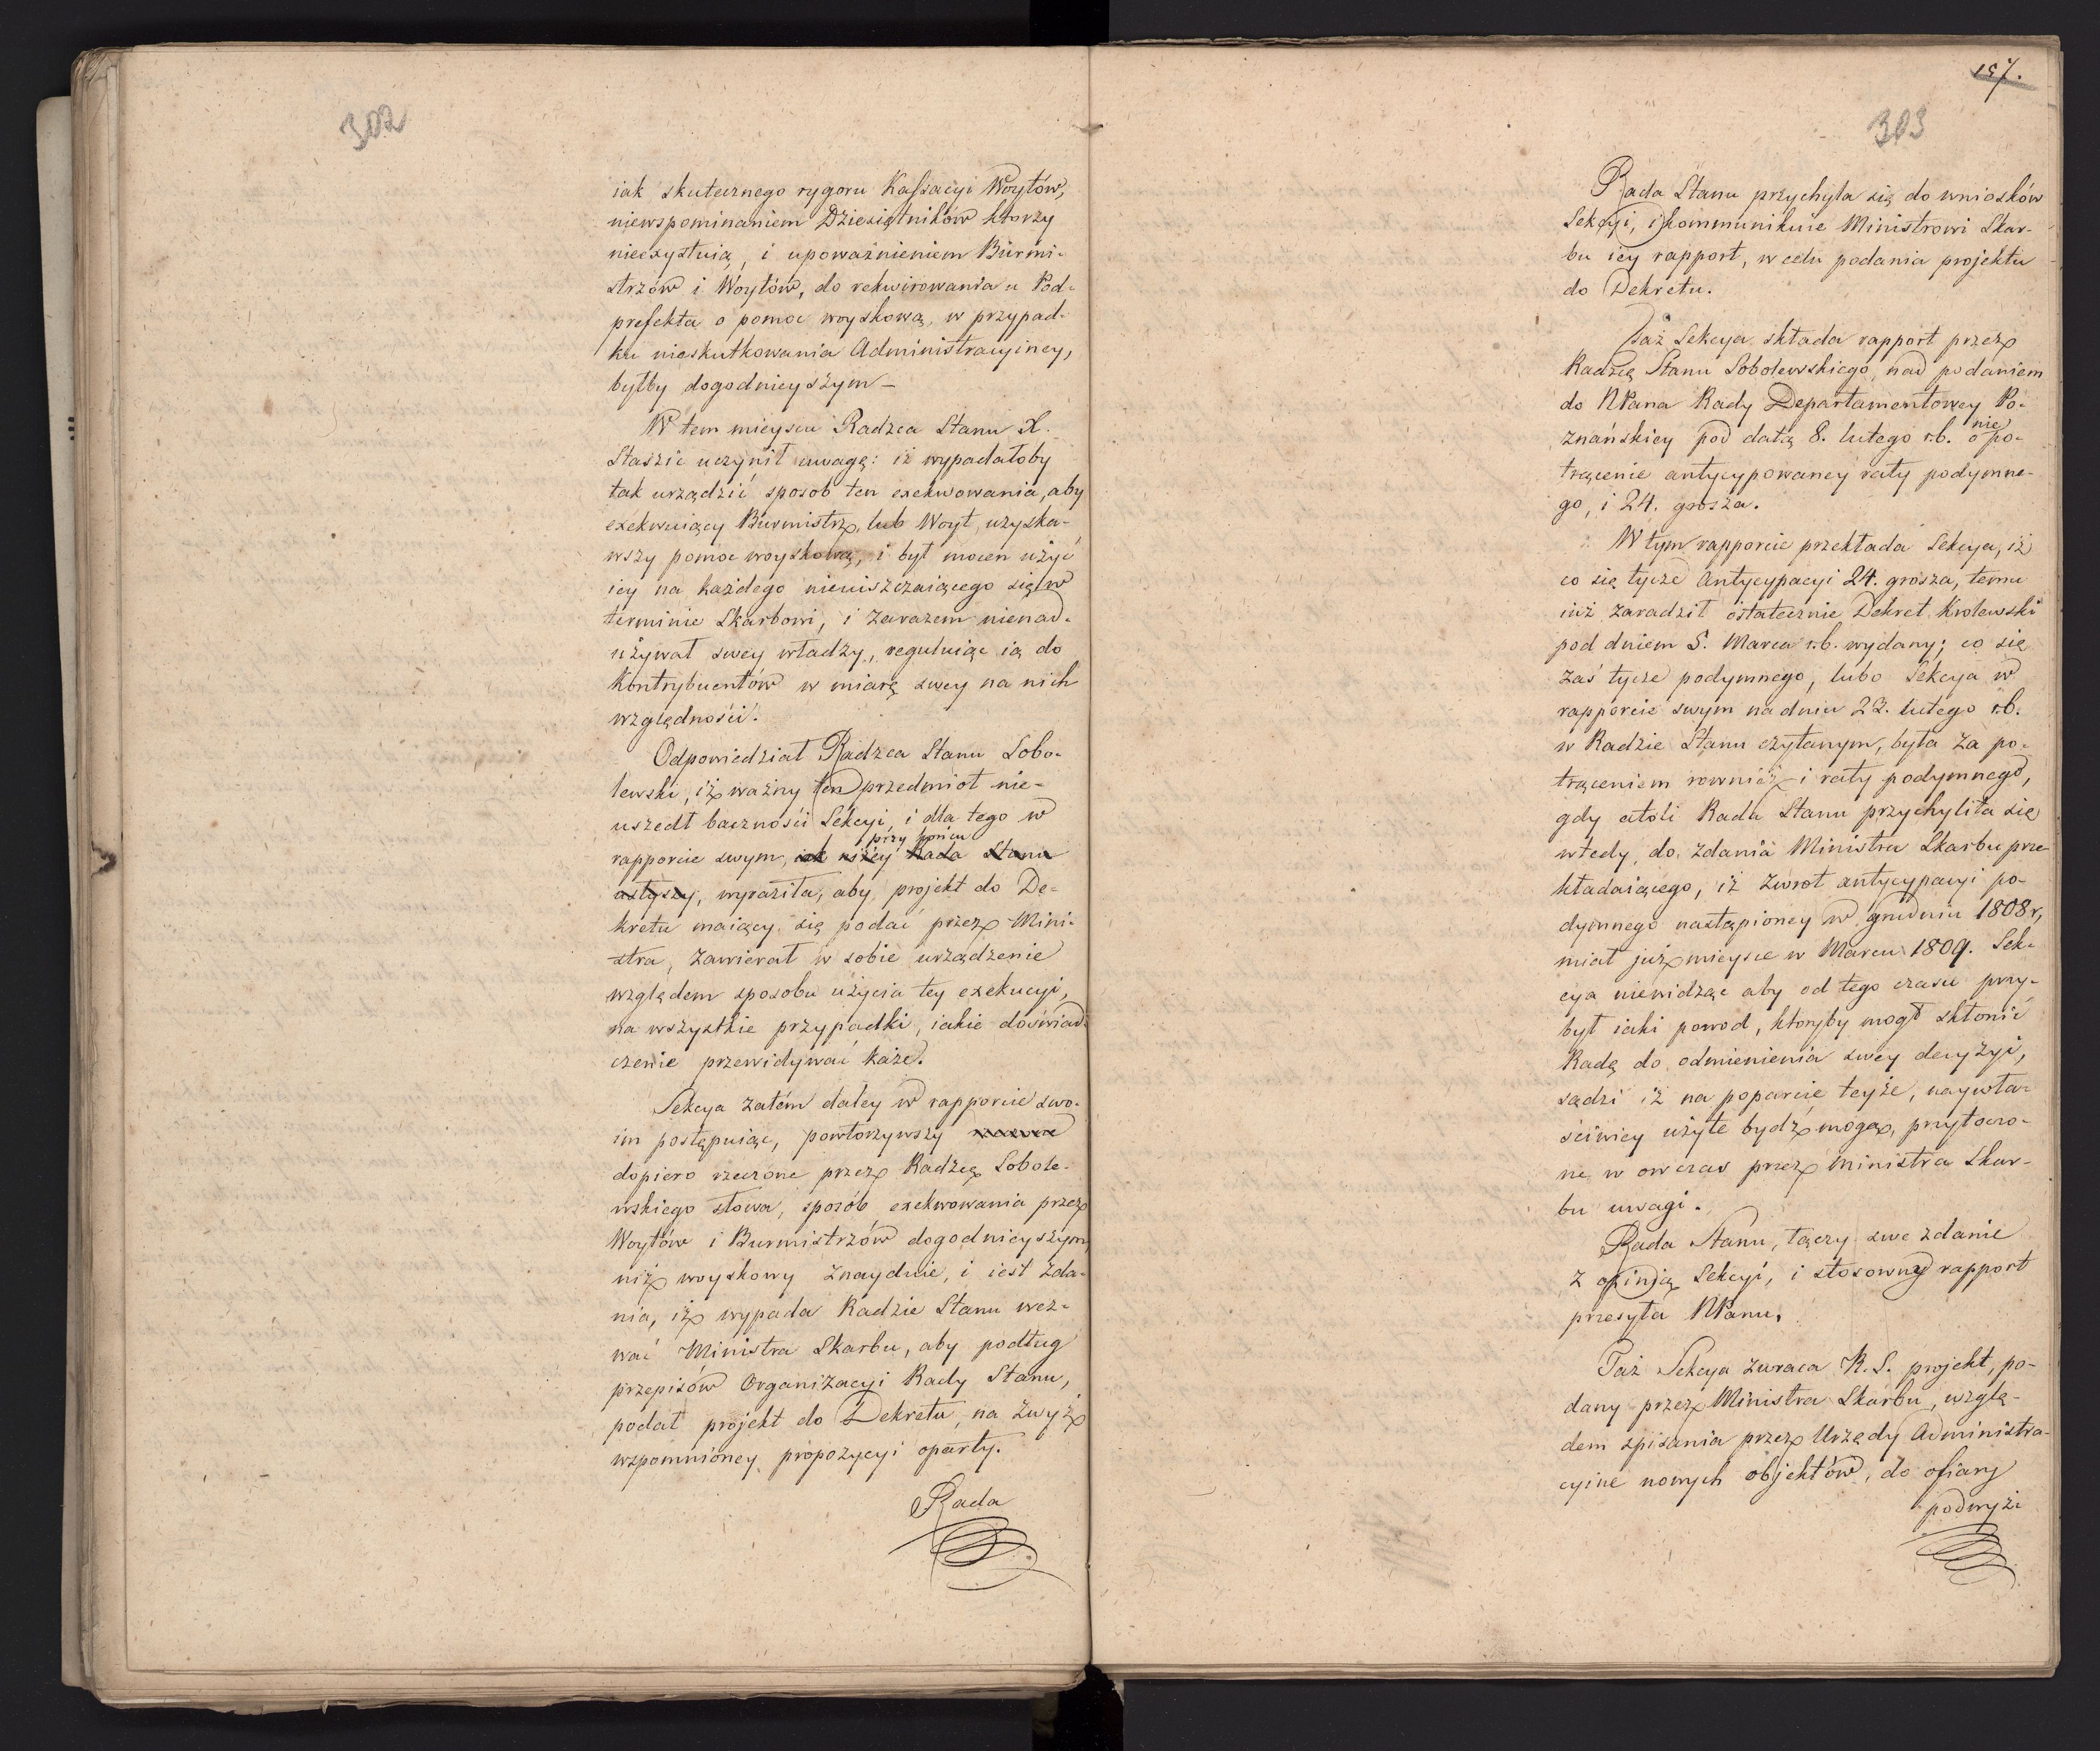 302
iak skutecznego rygoru Kassacyi Woytów,
niewspominaniem Dziesiątników ktorzy
nieexystuią, i upoważnieniem Burmi-
strzów i Woytów, do rekwirowania u Pod-
prefekta o pomoc woyskową, w przypad-
ku nieskutkowania Administracyiney,
byłby dogodnieyszym –
W tem mieyscu Radzca Stanu X.
Staszic uczynił uwagę: iż wypadałoby
tak urządzić sposob ten exekwowania, aby
exekwuiący Burmistrz, lub Woyt, uzyska-
wszy pomoc woyskową, i był mocen użyć
iey na każdego nieuiszczaiącego się w
terminie Skarbowi, i zarazem nienad-
używał swey władzy, reguluiąc ią do
Kontrybuentów w miarę swey na nich
względności.
Odpowiedział Radzca Stanu Sobo-
lewski, iż ważny ten przedmiot nie-
uszedł baczności Sekcyi, i dla tego w
przy końcu
rapporcie swym, iak niżey Rada Stanu
usłyszy, wyraziła, aby projekt do De-
kretu maiący się podać przez Mini-
stra, zawierał w sobie urządzenie
względem sposobu użycia tey exekucyi,
na wszystkie przypadki, iakie doświad-
czenie przewidywać każe.
Sekcya zatém daley w rapporcie swo-
im postępuiąc, powtorzywszy
dopiero rzeczone przez Radzcę Sobole-
wskiego słowa, sposób exekwowania przez
Woytów i Burmistrzów dogodnieyszym,
niż woyskowy znayduie, i iest zda-
nia, iż wypada Radzie Stanu wez-
wać Ministra Skarbu, aby podług
przepisów Organizacyi Rady Stanu,
podał projekt do Dekretu, na zwyż
wspomnióney propozycyi oparty.
Rada
157.
303
Rada Stanu przychyla się do wniosków
Sekcyi, i kommunikuie Ministrowi Skar-
bu iey rapport, w celu podania projektu
do Dekretu.
Taż Sekcya składa rapport przez
Radzcę Stanu Sobolewskiego, nad podaniem
do NPana Rady Departamentowey Po-
nie
znańskiey pod datą 8. lutego r.b. o po-
trącenie antycypowaney raty podymne-
go, i 24. grosza.
W tym rapporcie przekłada Sekcya, iż
co się tycze Antycypacyi 24. grosza, temu
iuż zaradził ostatecznie Dekret Krolewski
pod dniem 5. Marca r.b. wydany; co się
zaś tycze podymnego, lubo Sekcya w
rapporcie swym na dniu 23. lutego r.b.
w Radzie Stanu czytanym, była za po-
trąceniem rownież i raty podymnego,
gdy atoli Rada Stanu przychyliła się
wtedy, do zdania Ministra Skarbu prze-
kładaiącego, iż zwrot antycypacyi po-
dymnego nastąpioney w grudniu 1808 r,
miał już mieysce w Marcu 1809. Sek-
cya niewidząc aby od tego czasu przy-
był iaki powod, ktoryby mogł skłonić
Radę do odmienienia swey decyzyi,
sądzi iż na poparcie teyże, naywła-
ściwiey użyte bydź mogą, przytoczo-
ne w owczas przez Ministra Skar-
bu uwagi.
Rada Stanu, łączy swe zdanie
z opinią Sekcyi, i stosowny rapport
przesyła NPanu.
Taż Sekcya zwraca R. S. projekt, po-
dany przez Ministra Skarbu, wzglę-
dem spisania przez Urzędy Administra-
cyine nowych objektów, do ofiary
podwyż-